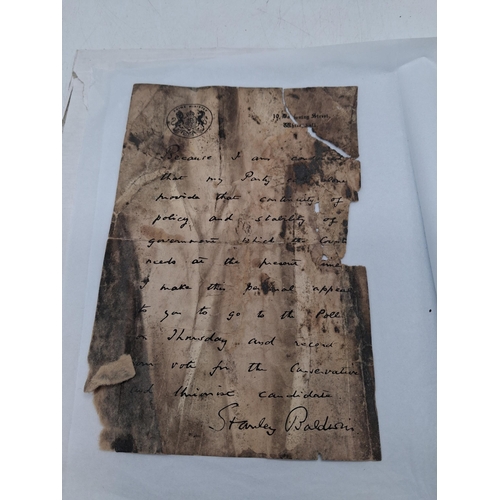 PRIME MINISTER
10, Downing Street,
Whitehall.
Because I am convinced
that my Party
provide that continuity of
policy and stability of
government which the Country
needs at the present
I make this personal appeal
to you to go to the Poll
on Thursday and record
your vote for the Conservative
and Unionist candidate.
Stanley Baldwin